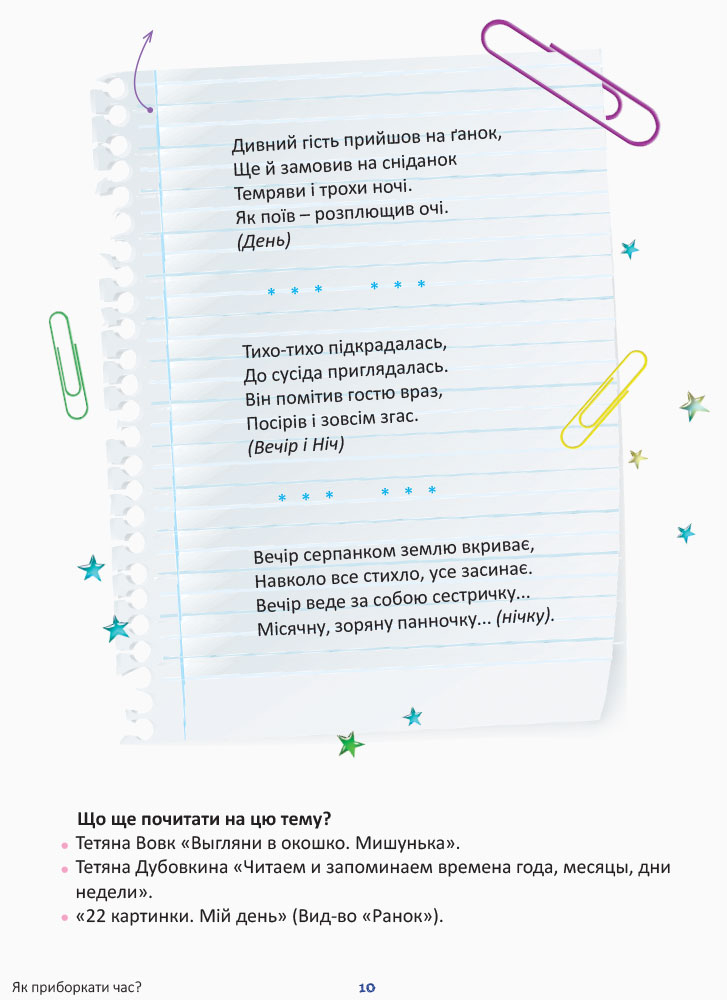 Дивний гість прийшов на ґанок,
Ще й замовив на сніданок
Темряви і трохи ночі.
Як поїв – розплющив очі.
(День)
* * * * * *
Тихо-тихо підкрадалась,
До сусіда приглядалась.
Він помітив гостю враз,
Посірів і зовсім згас.
(Вечір і Ніч)
* * * * * *
Вечір серпанком землю вкриває,
Навколо все стихло, усе засинає.
Вечір веде за собою сестричку...
Місячну, зоряну панночку... (нічку).
Що ще почитати на цю тему?
• Тетяна Вовк «Выгляни в окошко. Мишунька».
• Тетяна Дубовкина «Читаем и запоминаем времена года, месяцы, дни
недели».
• «22 картинки. Мій день» (Вид-во «Ранок»).
Як приборкати час?
10